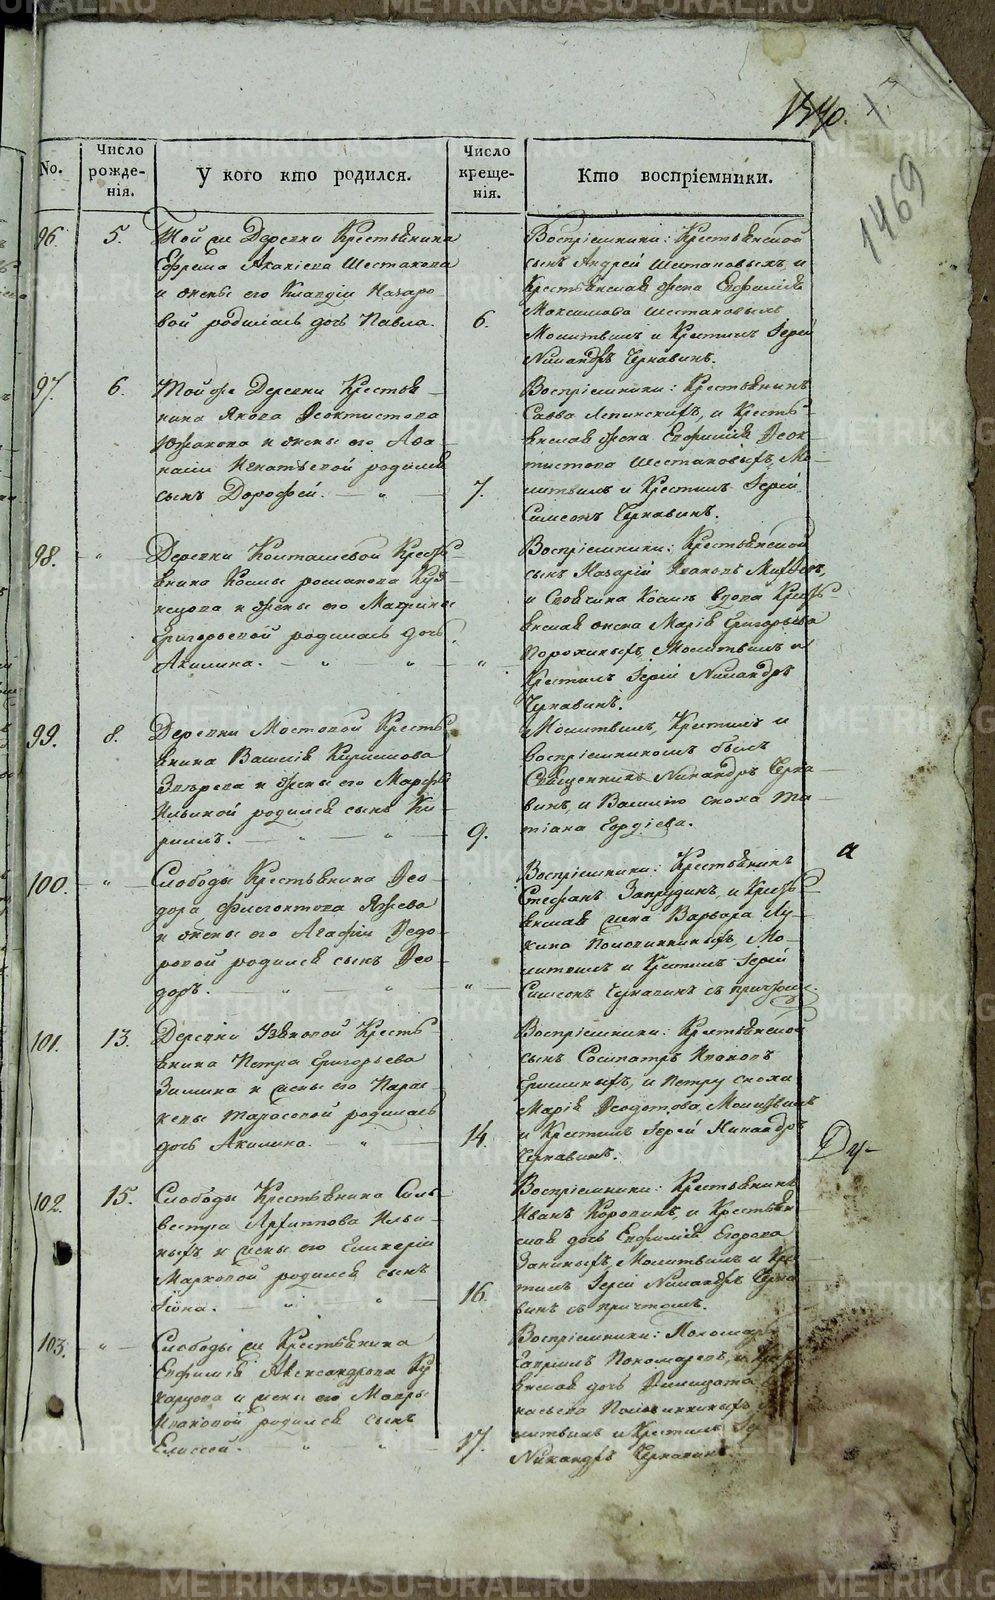 1540.
1469
No.
Число рожде-нія.
У кого кто родился.
Число креще-нія.
Кто воспріемники.
96.
5.
Той же Деревни Крестьянина
Ефрема Акакіева Шестакова
и жены его Клавдіи Назаро
вой родилась дочь Павла.
6.
Воспріемники: Крестьянской
сынъ Андрей Шестаковыхъ, и
Крестьянская жена Евфимія
Шестаковыхъ
Молитвилъ и Крестилъ Іерей
Никандръ Чернавинъ.
97.
6.
Той же Деревни Крестья-
нина Якова Ѳеоктистова
Южакова и жены его Афа
насіи Игнатьевой родился
сынъ Дорофей. — „ —
7.
Воспріемники: Крестьянинъ
Савва Лепинскихъ, и Кресть-
янская жена Евфимія Ѳеок-
тистова Шестаковыхъ, Мо-
литвилъ и Крестилъ Іерей
Симеонъ Чернавинъ.
98.
„
Деревни Колташевой Кресть-
янина Козмы романова Куз-
нецова и жены его Матрины
Григорьевой родилась дочь
Акилина. — „ — „ —
„
Воспріемники: Крестьянской
сынъ Назарій Ивановъ
и вдова Кресть-
янская жена Марія Григорьева
Порохиныхъ, Молитвилъ и
Крестилъ Іерей Никандръ
Чернавинъ.
99.
8.
Деревни Мостовой Кресть-
янина Василія Кирилова
Звѣрева и жены его Марфы
Ильиной родился сынъ Ки-
рилъ. — „ — „ —
9.
Молитвилъ, Крестилъ и
воспріемникомъ былъ
Священникъ Никандръ Черна-
винъ, и Василію сноха Та-
тіана Гордіева.
а
100.
„
Слободы Крестьянина Ѳео-
дора Яжева
и жены его Агафіи Ѳедо-
ровой родился сынъ Ѳео-
доръ. — „ — „ —
„
Воспріемники: Крестьянинъ
Стефанъ Запрудинъ, и Кресть-
янская жена Варвара Лу-
кина Половинкиныхъ, Мо-
литвилъ и Крестилъ Іерей
Симеонъ Чернавинъ съ причтомъ.
101.
13.
Деревни Крестья-
янина Петра Григорьева
Зимина и жены его Парас-
кевы Тарасовой родилась
дочь Акилина. — „ —
14.
Воспріемники: Крестьянской
сынъ Сосипатръ Ивановъ
и Петру сноха
Марія Ѳеодотова, Молитвилъ
и Крестилъ Іерей Никандръ
Чернавинъ.
Ду-
102.
15.
Слободы Крестьянина Силь-
вестра Архиппова Ильи-
ныхъ и жены его Гликеріи
Марковой родился сынъ
Іона. — „ — „ —
16.
Воспріемники: Крестьянинъ
Иванъ Коровинъ, и Крестьян-
ская дочь Евфимія Егорова
Заниныхъ, Молитвилъ и Кре-
стилъ Іерей Никандръ Черна
винъ съ причтомъ.
103.
„
Слободы же Крестьянина
Евфимія Александрова Ку-
карцова и жены его Мавры
Ивановой родился сынъ
Елисей. — „ — „ —
17.
Воспріемники: Пономарь
Гавріилъ Пономаревъ,
янская дочь
Половинкиныхъ
литвилъ и Крестилъ
Никандръ Чернавинъ.
METRIKI.GASU-URAL.RU